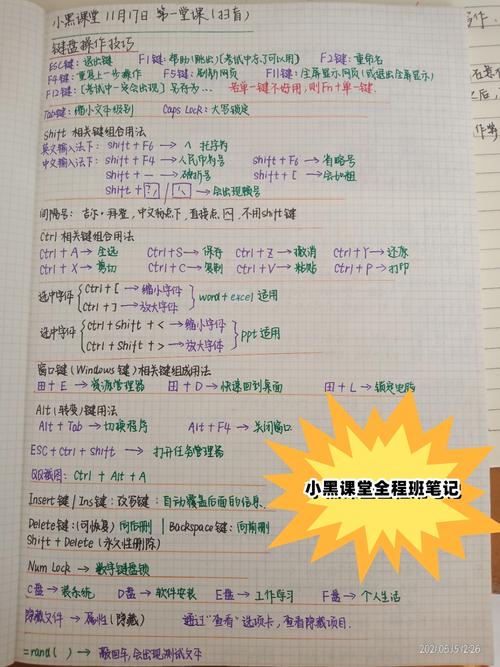 小黑课堂 11月17日 第一堂课(扫盲)
键盘操作技巧
ESC键:退出键 F1键:帮助(跳出)[考试中方可以用] F2键:重命名
F4键:重复上一步操作 F5键:刷新网页 F11键:全屏显示网页(或退出全屏显示)
F12键:[考试中一定会出现] 另存为... 若单一键不好用,则Fn+单一键.
Tab键:缩小文本级别 Caps Lock:大写锁定
Shift 相关键组合用法
英文输入法下:shift+F6 → ^ 托字符
中文输入法下:shift+F4 → 人民币符号 shift+F6 → 省略号
shift+— → 破折号 shift+[ → 会加粗
shift+ ?/ | \ → 会出现顿号
间隔号:吉尔·拜登,中文标点下,直接点,不用shift键
Ctrl 相关键组合用法
Ctrl+A → 全选 Ctrl+S → 保存 Ctrl+Z → 撤消 Ctrl+Y → 还原
Ctrl+X → 剪切 Ctrl+C → 复制 Ctrl+V → 粘贴 Ctrl+P → 打印
选中字体 Ctrl+[ → 缩小字体
Ctrl+] → 放大字体 word+excel 适用
选中字体 Ctrl+shift+< → 缩小字体
Ctrl+Shift+> → 放大字体 ppt适用
窗口键(Windows键)相关键组成用法
田+E → 资源管理器 田+D → 快速回到桌面 田+L → 锁定电脑
Alt(转变)键用法
Alt+Tab → 切换程序 Alt+F4 → 关闭窗口
ESC+Ctrl+shift → 打开任务管理器
QQ截图:Ctrl+Alt+A
小黑课堂全程班笔记
Insert键/Ins键:改写键:自动覆盖后面的信息.
Delete键:(可恢复)向后删 | Backspace键:向前删
Shift+Delete(永久性删除)
Num Lock → 数字键盘锁
C盘 → 装系统 D盘 → 软件安装 E盘 → 工作学习 F盘 → 个人生活
隐藏文件 → 属性(隐藏) 通过"查看"选项卡,查看隐藏项目.
=rand() → 敲回车,会出现测试文本